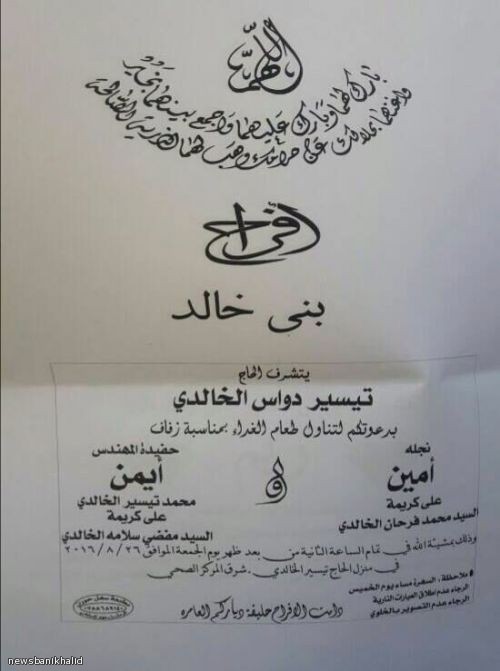 اللهم
بارك لهما وبارك عليهما واجمع بينهما بخير
واغنهما بحلالك عن حرامك وهب لهما الذرية الصالحة
أفراح
بني خالد
يتشرف الحاج
تيسير دواس الخالدي
بدعوتكم لتناول طعام الغداء بمناسبة زفاف
نجله
أمين
على كريمة
السيد محمد فرحان الخالدي
و
حفيدة المهندس
أيمن
محمد تيسير الخالدي
على كريمة
السيد مفضي سلامه الخالدي
وذلك بمشيئة الله في تمام الساعة الثانية من بعد ظهر يوم الجمعة الموافق ٢٠١٦/٨/٢٦
في منزل الحاج تيسير الخالدي . شرق المركز الصحي
ملاحظة، السهرة مساء يوم الخميس
الرجاء عدم اطلاق العيارات النارية
الرجاء عدم التصوير بالخلوي
دامت الافراح حليفة دياركم العامره
newsbanikhalid